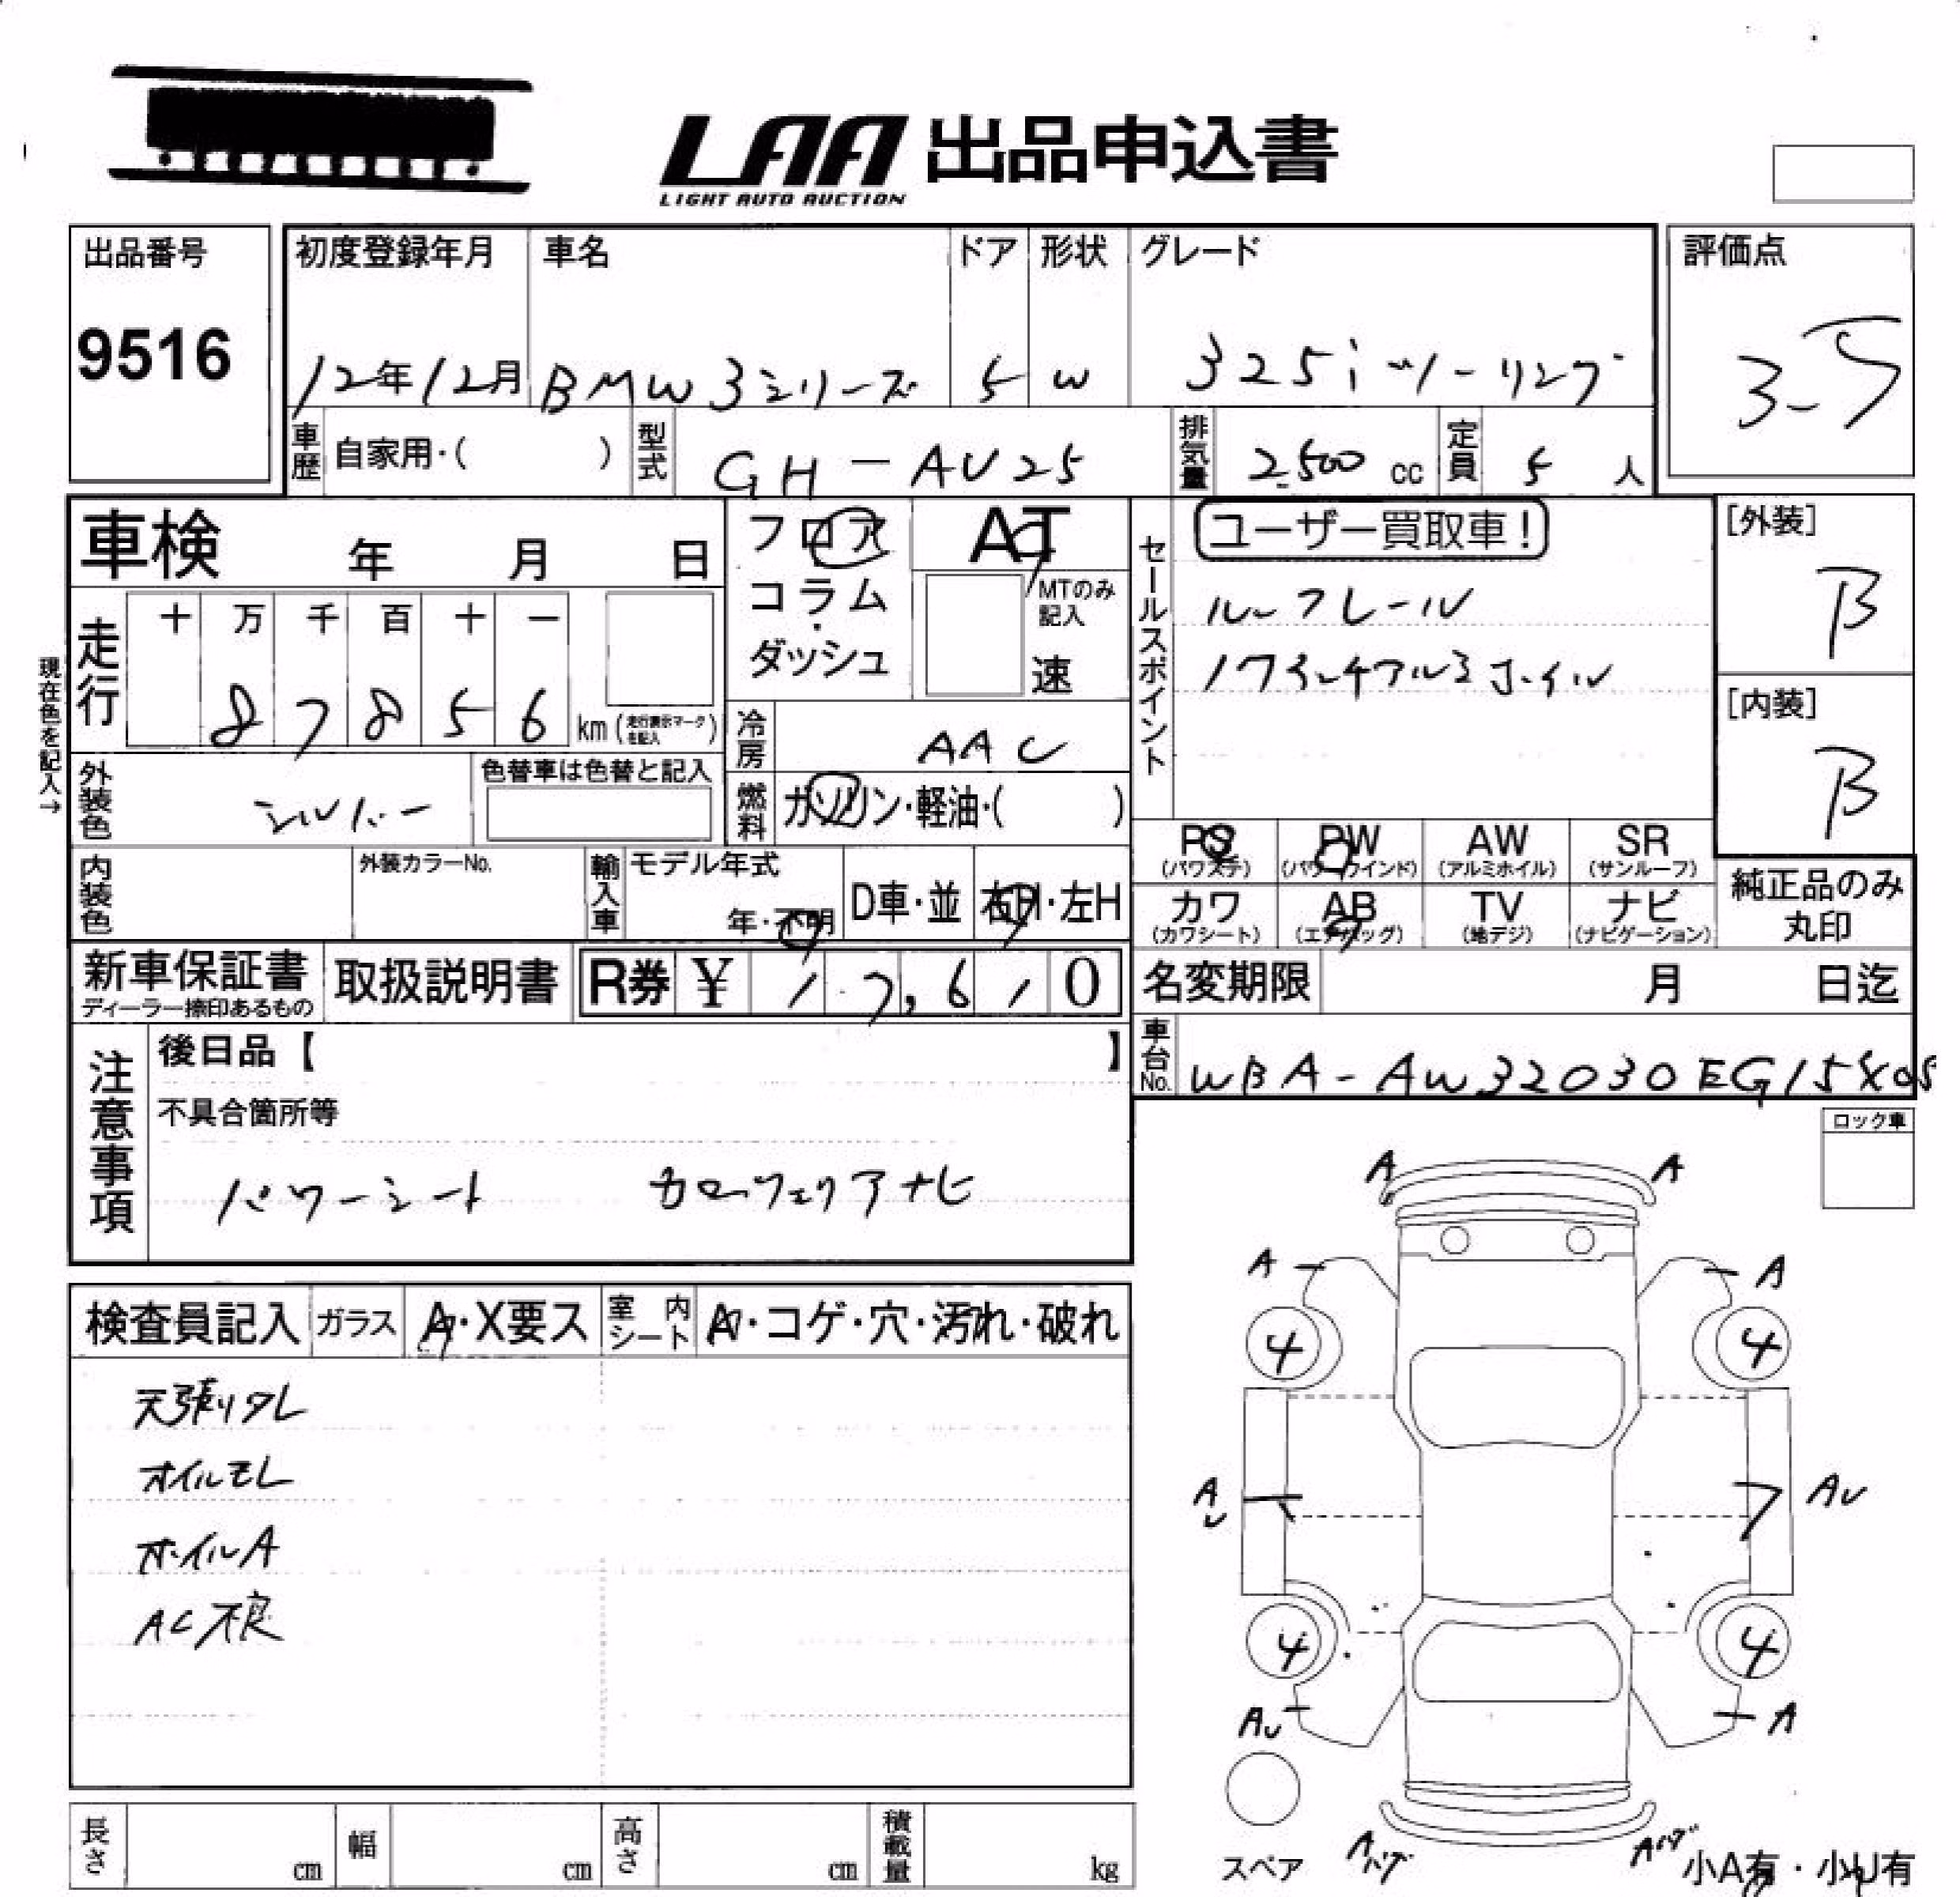 LAA 出品申込書
LIGHT AUTO AUCTION
出品番号
9516
初度登録年月 車名 ドア 形状 グレード
12年12月 BMW 3シリーズ 5 W 325iツーリング
評価点
3.5
車歴 自家用・( ) 型式 GH-AV25 排気量 2500 cc 定員 5 人
車検 年 月 日
フロア
コラム
・
ダッシュ
AT
MTのみ
記入
速
セールスポイント
ユーザー買取車!
ルーフレール
17インチアルミホイル
[外装]
B
[内装]
B
現在色を記入→
走行
十 万 千 百 十 一
8 7 8 5 6 km (走行表示マークを記入)
冷房 AAC
外装色 シルバー
色替車は色替と記入
燃料 ガソリン・軽油・( )
PS (パワステ) PW (パワーウインド) AW (アルミホイル) SR (サンルーフ)
カワ (カワシート) AB (エアバッグ) TV (地デジ) ナビ (ナビゲーション)
純正品のみ
丸印
内装色
外装カラーNo.
輸入車 モデル年式
年・不明
D車・並 右H・左H
新車保証書
ディーラー捺印あるもの
取扱説明書
R券 ¥ 17,610
名変期限 月 日迄
車台No. WBA-AW32030EG15805
注意事項
後日品【 】
不具合箇所等
パワーシート カロッツェリアナビ
ロック車
検査員記入 ガラス A・X要ス 室内シート A・コゲ・穴・汚れ・破れ
天張りタレ
オイルモレ
ホイルA
AC不良
A A
A A
4 4
AU AU
4 4
AU A
スペア
Aハゲ Aハゲ
小A有・小U有
長さ cm 幅 cm 高さ cm 積載量 kg